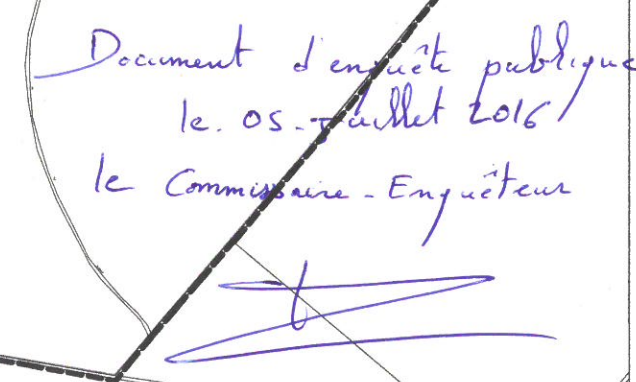 Document d'enquête publique
le. 05 - Juillet 2016
le Commissaire - Enquêteur